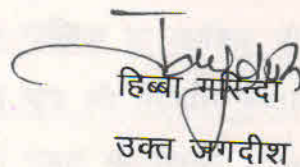 हिब्बा गरिन्दा
उक्त जगदीश